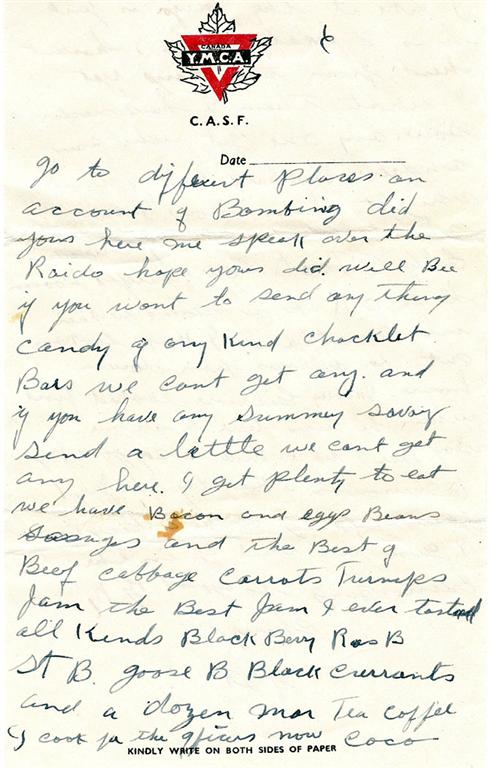 CANADA
Y.M.C.A.
C.A.S.F.
6
Date
go to different Places on
account of Bombing did
yous here me speak over the
Raido hope yous did. Well Bee
if you want to send any thing
candy of any Kind chocklet
Bars we cant get any. and
if you have any summey savory
send a little we cant get
any here. I get plenty to eat
we have Bacon and eggs Beans
Sosages and the Best of
Beef cabbage Carrots Turnips
Jam the Best Jam I ever tasted
all Kinds Black Bery Ras B
St B. goose B Black Currants
and a dozen mor Tea Coffee
Coco
I cook for the officers now
KINDLY WRITE ON BOTH SIDES OF PAPER